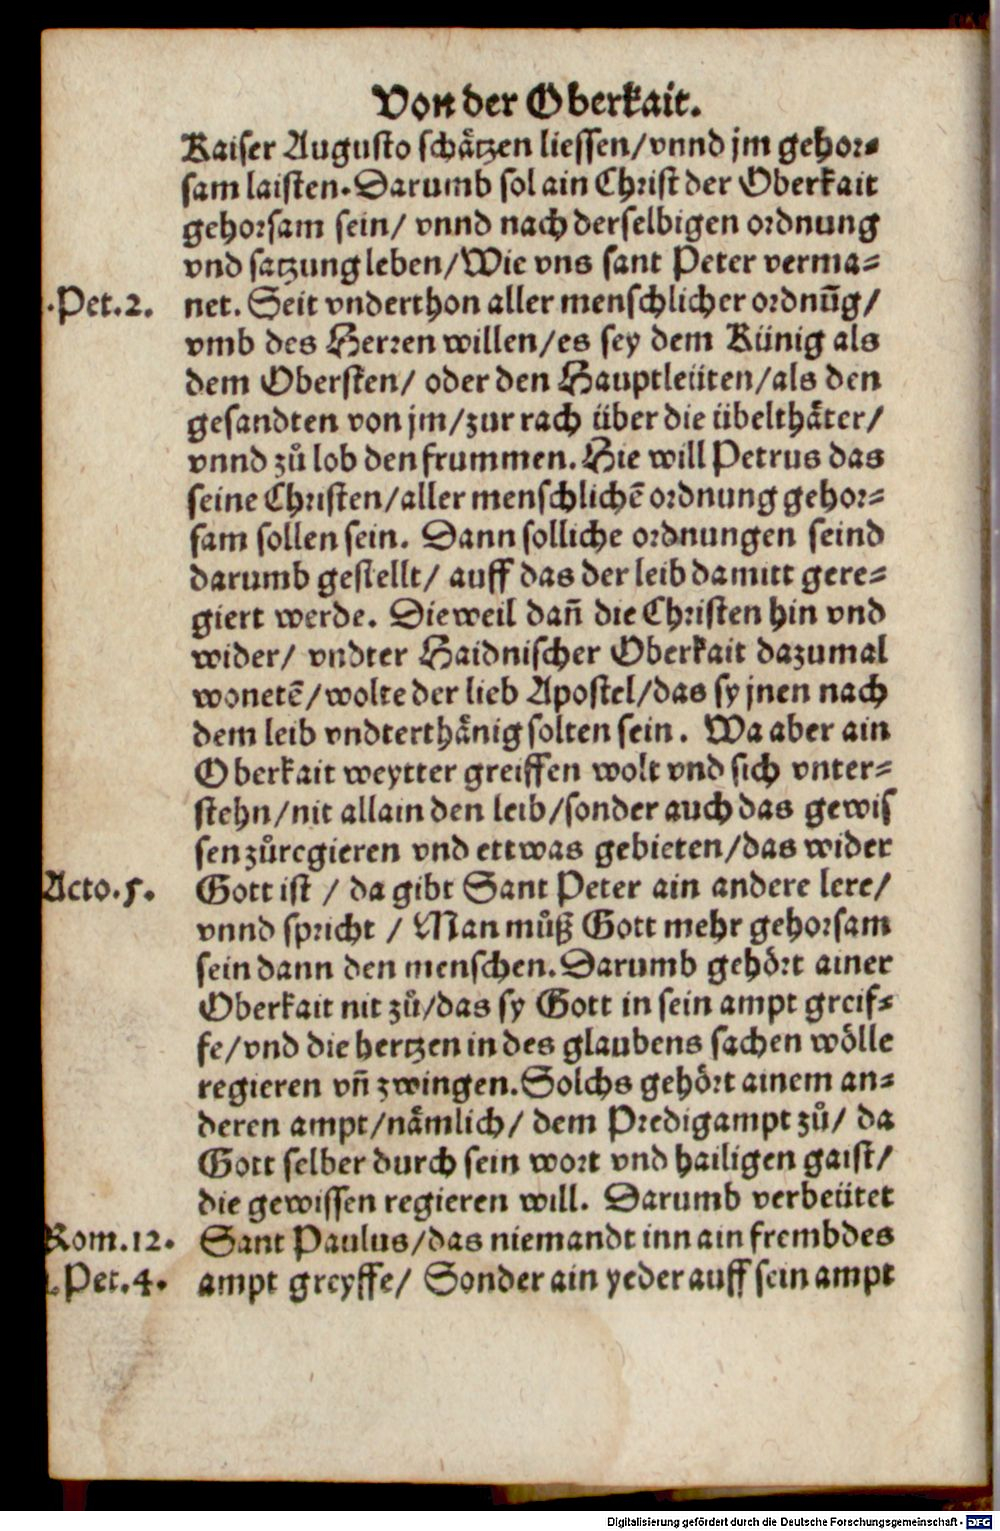 Von der Oberkait.
Kaiser Augusto schätzen liessen/vnnd jm gehor⸗
sam laisten. Darumb sol ain Christ der Oberkait
gehorsam sein/ vnnd nach derselbigen ordnung
vnd satzung leben/Wie vns sant Peter verma⸗
.Pet.2. net. Seit vnderthon aller menschlicher ordnūg/
vmb des Herren willen/es sey dem Künig als
dem Obersten/ oder den Hauptleüten/als den
gesandten von jm/zur rach über die übelthäter/
vnnd zů lob den frummen. Hie will Petrus das
seine Christen/aller menschlichē ordnung gehor⸗
sam sollen sein. Dann solliche ordnungen seind
darumb gestellt/ auff das der leib damitt gere⸗
giert werde. Dieweil dañ die Christen hin vnd
wider/ vndter Haidnischer Oberkait dazumal
wonetē/wolte der lieb Apostel/das sy jnen nach
dem leib vndterthänig solten sein. Wa aber ain
Oberkait weytter greiffen wolt vnd sich vnter⸗
stehn/nit allain den leib/sonder auch das gewis
sen zůregieren vnd ettwas gebieten/das wider
Acto.5. Gott ist / da gibt Sant Peter ain andere lere/
vnnd spricht / Man můß Gott mehr gehorsam
sein dann den menschen. Darumb gehört ainer
Oberkait nit zů/das sy Gott in sein ampt greif⸗
fe/vnd die hertzen in des glaubens sachen wölle
regieren vñ zwingen. Solchs gehört ainem an⸗
deren ampt/nämlich/ dem Predigampt zů/ da
Gott selber durch sein wort vnd hailigen gaist/
die gewissen regieren will. Darumb verbeütet
Rom.12. Sant Paulus/das niemandt inn ain frembdes
.Pet.4. ampt greyffe/ Sonder ain yeder auff sein ampt
Digitalisierung gefördert durch die Deutsche Forschungsgemeinschaft - DFG